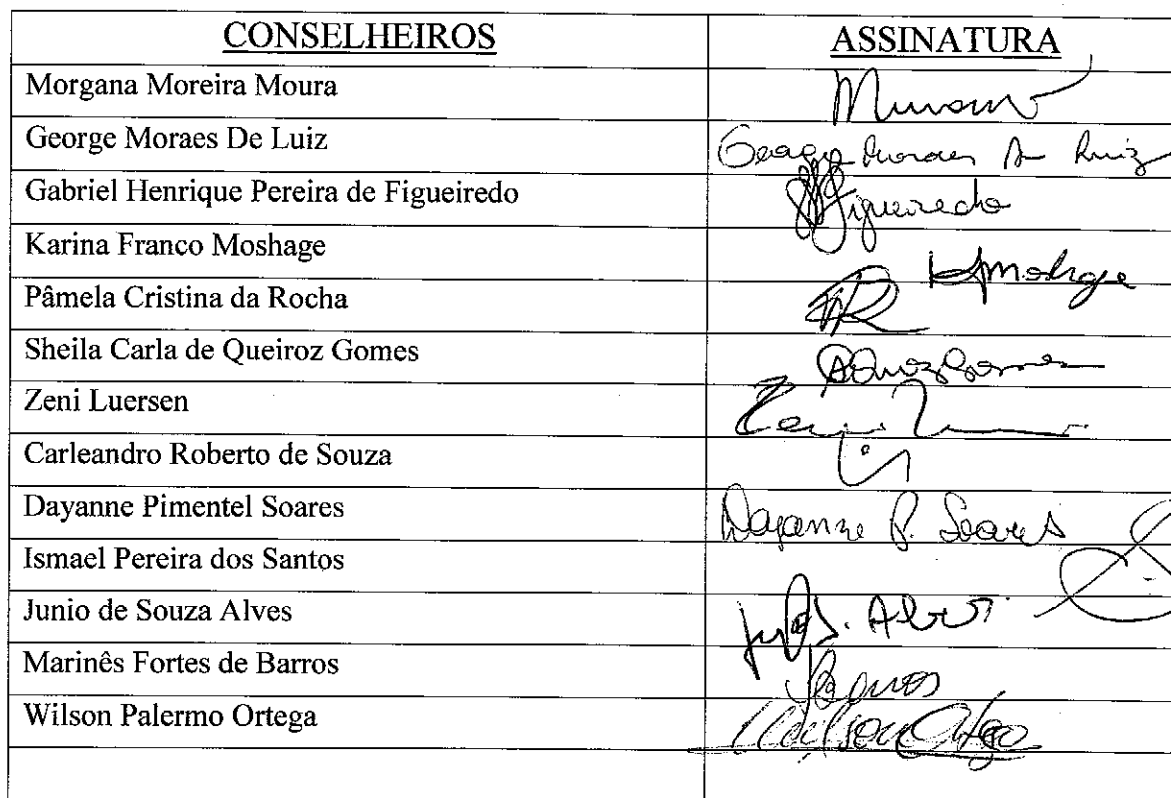 CONSELHEIROS ASSINATURA
Morgana Moreira Moura
George Moraes De Luiz George Moraes De Luiz
Gabriel Henrique Pereira de Figueiredo Figueiredo
Karina Franco Moshage KFMoshage
Pâmela Cristina da Rocha
Sheila Carla de Queiroz Gomes
Zeni Luersen Zeni
Carleandro Roberto de Souza
Dayanne Pimentel Soares Dayanne P. Soares
Ismael Pereira dos Santos
Junio de Souza Alves
Marinês Fortes de Barros
Wilson Palermo Ortega Wilson Ortega